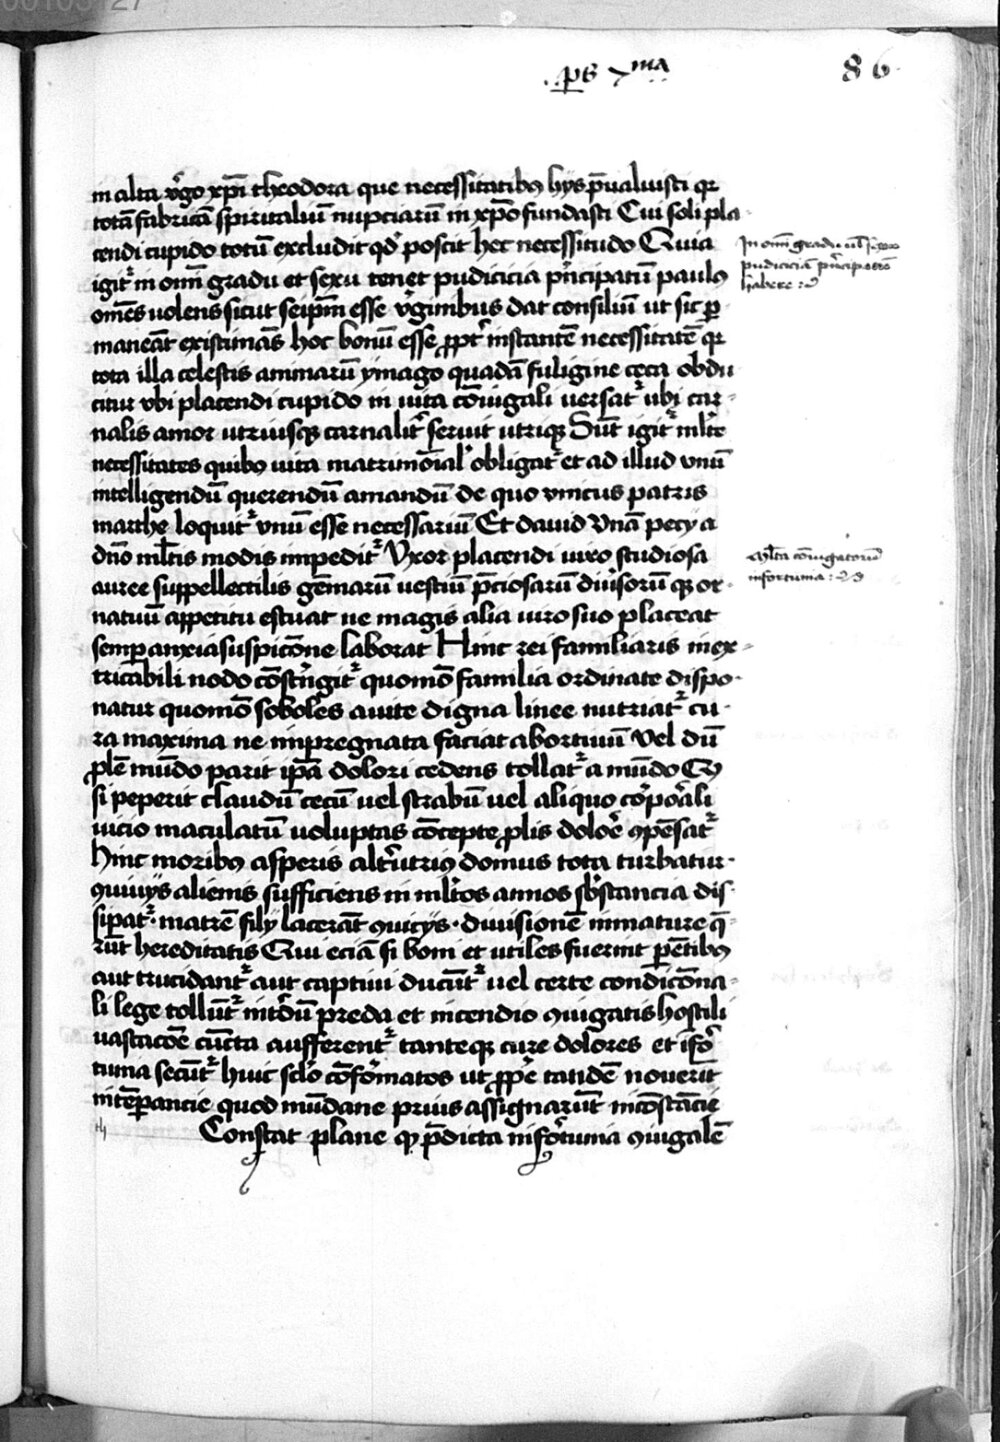 00105127
.. ps 7ma ..
86
in alta v̓go xp̄i theodora que necessitatibꝫ hys p̄ualuisti qr
totā fabricā spiritaliū nupciarū in xp̄o fundasti Cui soli pla-
cendi cupido totū excludit qd̓ poscit hec necessitudo Quia
igit᷑ in om̄i gradu et sexu tenet pudicicia pn̓cipatū paulꝰ
om̄es uolens sicut seip̄m esse v̓ginibus dat consiliū ut sic ꝑ
maneāt existimās hoc bonū esse ꝓpt̓ instantē necessitatē qr
tota illa celestis animarū ymago quadā fuligine ceca obdu
citur vbi placendi cupido in uita cōiugali uersat᷑ ubi car-
nalis amor utriusqꝫ carnalit̓ seruit utriqꝫ Sūt igit᷑ ml̓te
necessitates quibꝰ uita matrimōial̓ obligat᷑ et ad illud vnū
intelligendū querendū amandū de quo vnicus patris
marthe loquit᷑ vnū esse necessariū Et dauid Vnā pecij a
dn̄o ml̓tis modis impedit᷑ Vxor placendi uiro studiosa
auree suppellectilis gēmarū uestiū p̄ciosarū diu̓sorū qꝫ or-
natuū appetitu estuat ne magis alia uiro suo placeat
semꝑ anxia suspicōne laborat Hinc rei familiaris inex-
tricabili nodo cōstn̓git᷑ quomō familia ordinate dispo-
natur quomō soboles auite digna linee nutriat᷑ cu-
ra maxima ne impregnata faciat abortiuū Vel dū
ꝓlē mūdo parit ip̄a dolori cedens tollat᷑ a mūdo Qꝫ
si peperit claudū cecū uel strabū uel aliquo cor̓poral̓i
uicio maculatū uoluptas cōcepte ꝓlis dolor̓e ꝯpēsat᷑
hinc moribꝰ asperis alt̓utriꝰ domus tota turbatur-
ꝯuiuijs alienis sufficiens in ml̓tos annos sb̓stancia dis-
sipat᷑ matrē filij lacerāt ꝯuicijs · diuisionē inmature q̄-
rūt hereditatis Qui eciā si boni et utiles fuerint ꝑentibꝰ
aut trucidant᷑ aut captiui ducūt᷑ uel certe condicōna-
li lege tollūt᷑ intd̓ū preda et incendio ꝯiugatis hostili
uastacōe cūcta aufferent᷑ tanteqꝫ cure dolores et īfor̓
tuna secūt᷑ huic sc̓lo cōfor̓matos ut ꝓpe tandē nouerīt
intēperancie quod mūdane prius assignarūt incōstācie
Constat plane qꝫ p̄dicta infor̓tunia ꝯiugalē
In om̄i gradu uel sexu
pudiciciā pn̓cipatum
habere :
Ml̓ta cōiugatorū
infortunia :